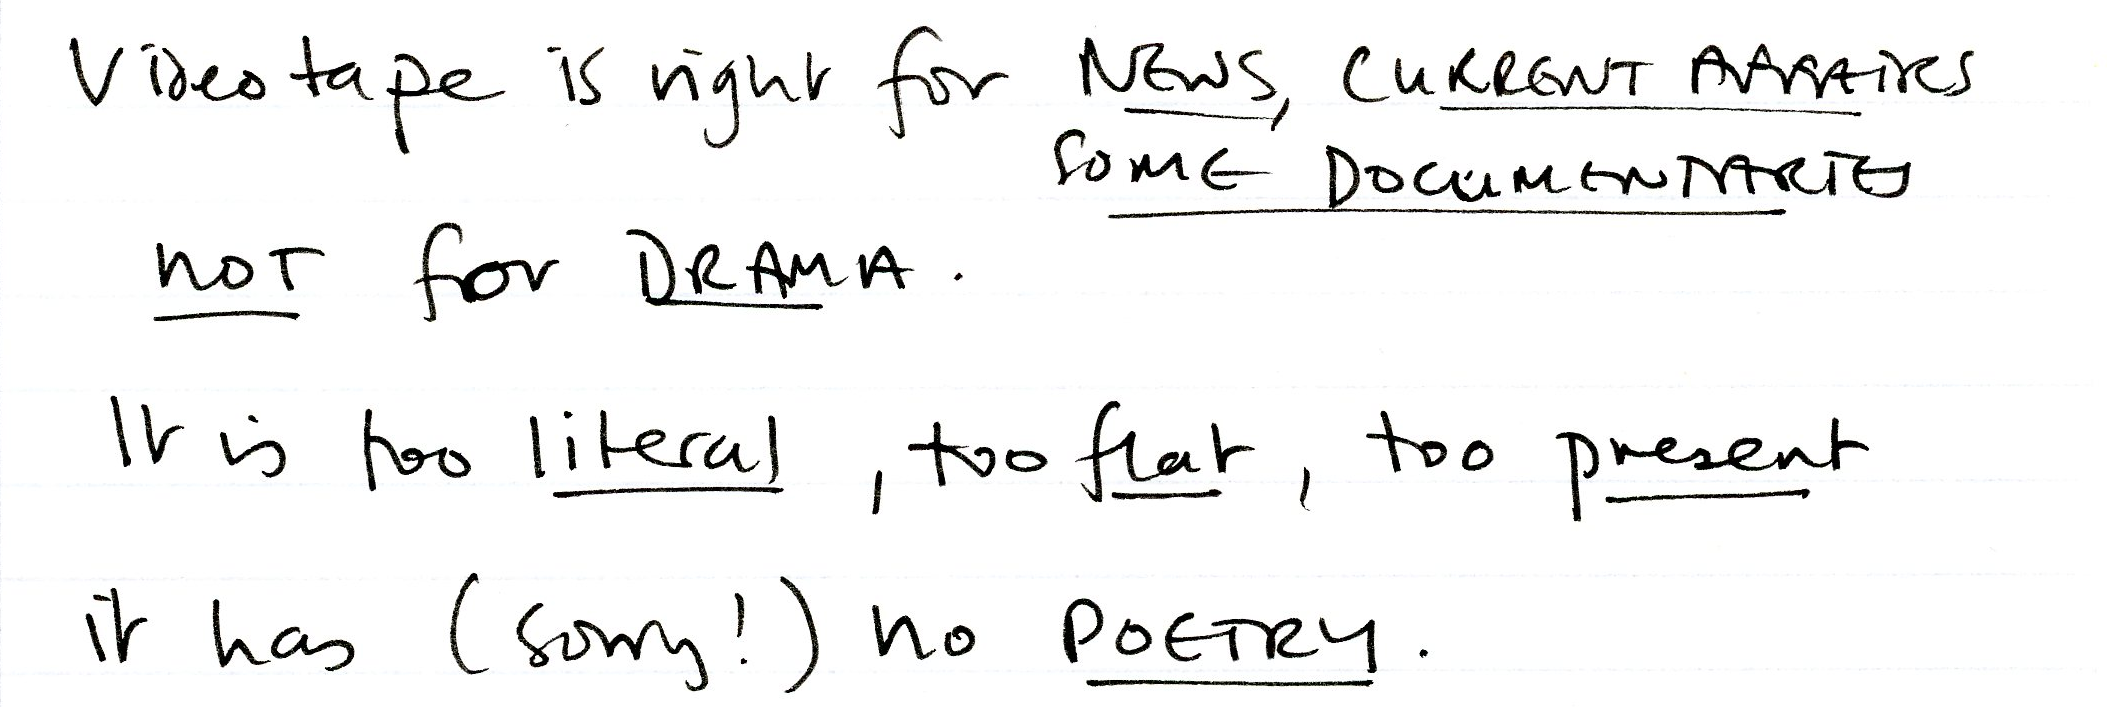 Videotape is right for NEWS, CURRENT AFFAIRS
SOME DOCUMENTARIES
NOT for DRAMA.
It is too literal, too flat, too present
it has (sorry!) no POETRY.